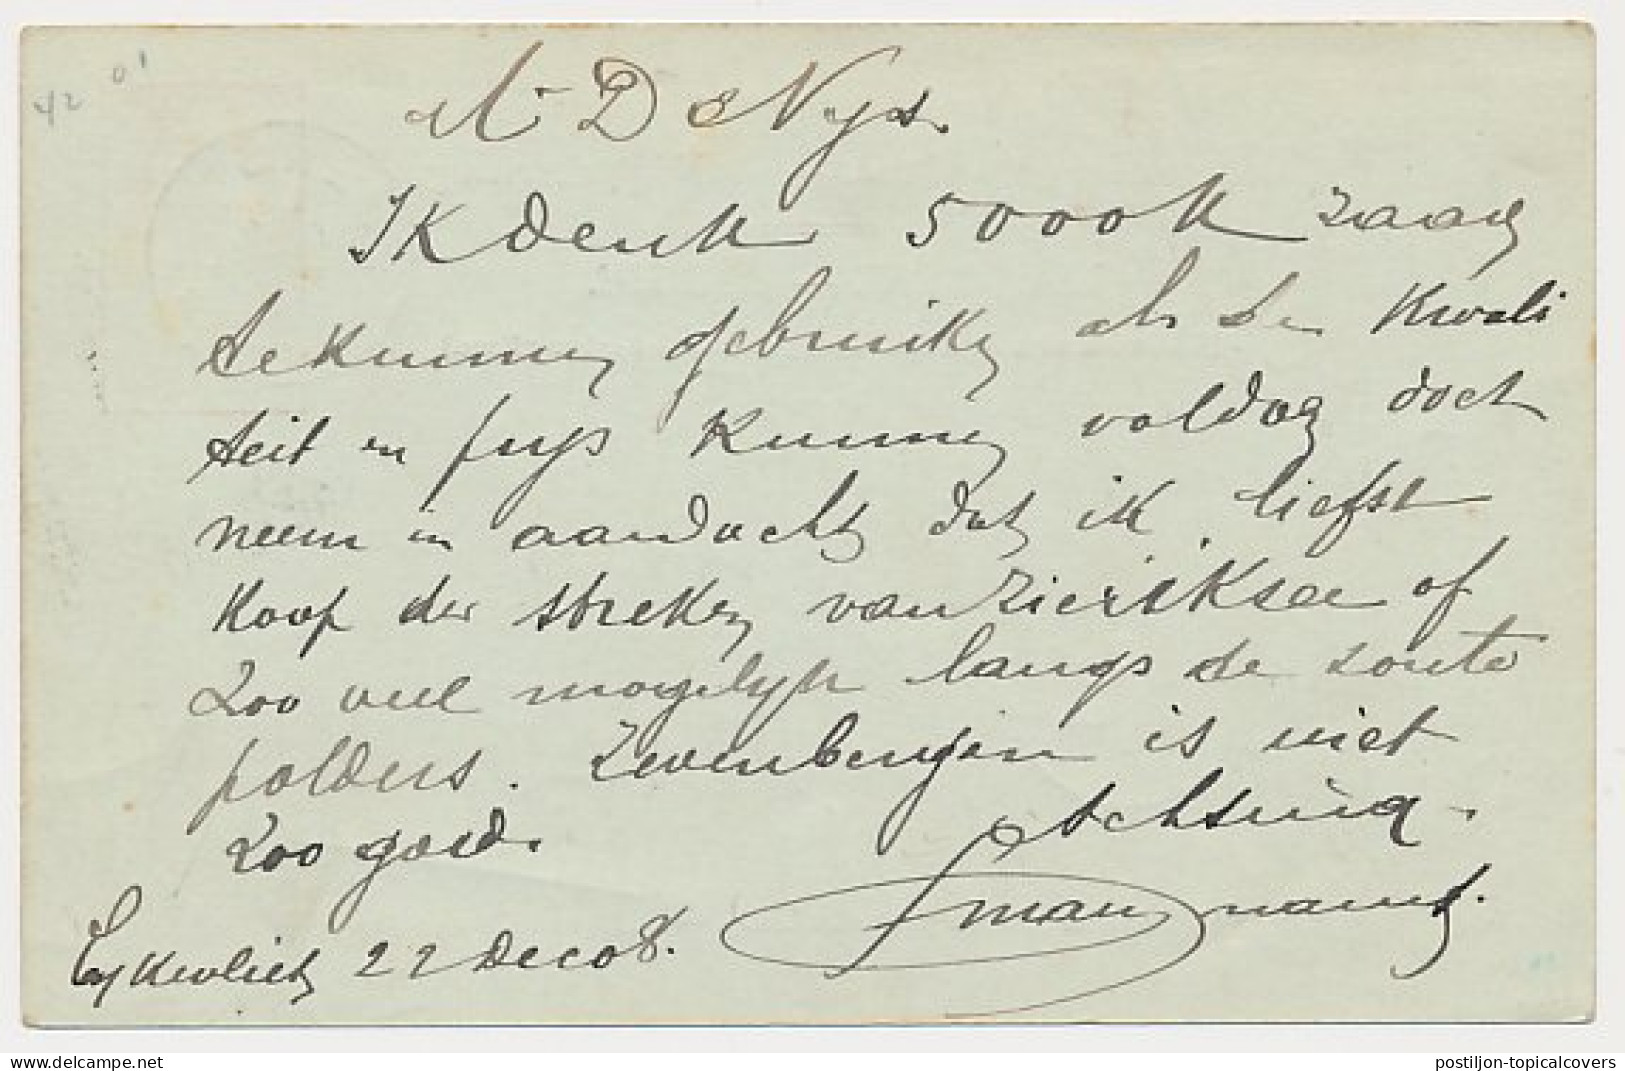 42 01
Mr D Nijs.
IK denk 5000 K
te kunnen gebruiken als de Kwali
teit en prijs kunnen voldoen doch
neem in aandacht dat ik liefst
Koop der streken van Zierikzee of
Zoo veel mogelijk langs de zoute
polders. Zevenbergen is niet
Zoo goed. Achtend.
22 Dec 08.
https://www.delcampe.net
postiljon-topicalcovers